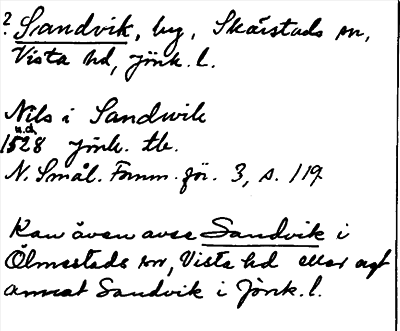 ? Sandvik, by, Skärstads sn,
Vista hd, Jönk. l.
Nils i Sandwik
u.d.
1528 Jönk. tb.
N. Smål. Fornm. för. 3, s. 119
Kan även avse Sandvik i
Ölmstads sn, Vista hd eller ngt
annat Sandvik i Jönk. l.